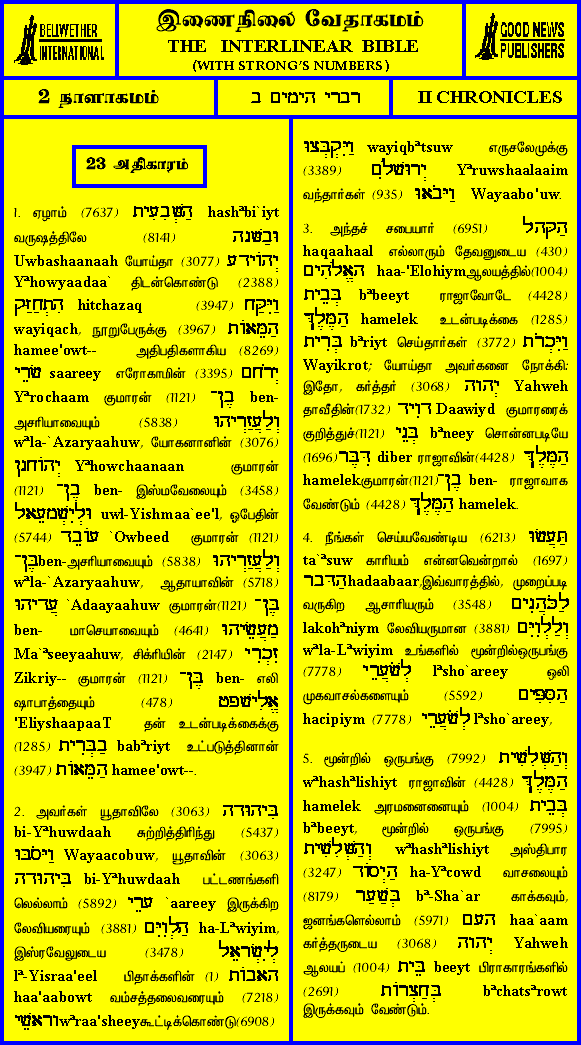 BELLWETHER
INTERNATIONAL
இணைநிலை வேதாகமம்
THE INTERLINEAR BIBLE
(WITH STRONG'S NUMBERS)
GOOD NEWS
PUBLISHERS
2 நாளாகமம்
דברי הימים ב
II CHRONICLES
23 அதிகாரம்
1. ஏழாம் (7637) הַשְּׁבִעִית hashªbi`iyt
வருஷத்திலே (8141) וּבַשָּׁנָה
Uwbashaanaah யோய்தா (3077) יְהוֹיָדָע
Yªhowyaadaa` திடன்கொண்டு (2388)
הִתְחַזַּק hitchazaq (3947) וַיִּקַּח
wayiqach, நூறுபேருக்கு (3967) הַמֵּאוֹת
hamee'owt-- அதிபதிகளாகிய (8269)
שָׂרֵי saareey எரோகாமின் (3395) יְרֹחָם
Yªrochaam குமாரன் (1121) בֶּן־ ben-
அசரியாவையும் (5838) וְלַעֲזַרְיָהוּ
wªla-`Azaryaahuw, யோகனானின் (3076)
יְהוֹחָנָן Yªhowchaanaan குமாரன்
(1121) בֶּן־ ben- இஸ்மவேலையும் (3458)
וּלְיִשְׁמָעֵאל uwl-Yishmaa`ee'l, ஓபேதின்
(5744) עוֹבֵד `Owbeed குமாரன் (1121)
בֶּן־ben-அசரியாவையும் (5838) וְלַעֲזַרְיָהוּ
wªla-`Azaryaahuw, ஆதாயாவின் (5718)
עֲדָיָהוּ `Adaayaahuw குமாரன்(1121) בֶּן־
ben- மாசெயாவையும் (4641) מַעֲשֵׂיָהוּ
Ma`ªseeyaahuw, சிக்ரியின் (2147) זִכְרִי
Zikriy-- குமாரன் (1121) בֶּן־ ben- எலி
ஷாபாத்தையும் (478) אֱלִישָׁפָט
'EliyshaapaaT தன் உடன்படிக்கைக்கு
(1285) בַבְּרִית babªriyt உட்படுத்தினான்
(3947) הַמֵּאוֹת hamee'owt--.
2. அவர்கள் யூதாவிலே (3063) בִּיהוּדָה
bi-Yªhuwdaah சுற்றித்திரிந்து (5437)
וַיָּסֹבּוּ Wayaacobuw, யூதாவின் (3063)
בִּיהוּדָה bi-Yªhuwdaah பட்டணங்களி
லெல்லாம் (5892) עָרֵי `aareey இருக்கிற
லேவியரையும் (3881) הַלְוִיִּם ha-Lªwiyim,
இஸ்ரவேலுடைய (3478) לְיִשְׂרָאֵל
lª-Yisraa'eel பிதாக்களின் (1) הָאָבוֹת
haa'aabowt வம்சத்தலைவரையும் (7218)
וְרָאשֵׁיwªraa'sheeyகூட்டிக்கொண்டு(6908)
וַיִּקְבְּצוּ wayiqbªtsuw எருசலேமுக்கு
(3389) יְרוּשָׁלָםִ Yªruwshaalaaim
வந்தார்கள் (935) וַיָּבֹאוּ Wayaabo'uw.
3. அந்தச் சபையார் (6951) הַקָּהָל
haqaahaal எல்லாரும் தேவனுடைய (430)
הָאֱלֹהִים haa-'Elohiymஆலயத்தில்(1004)
בְּבֵית bªbeeyt ராஜாவோடே (4428)
הַמֶּלֶךְ hamelek உடன்படிக்கை (1285)
בְּרִית bªriyt செய்தார்கள் (3772) וַיִּכְרֹת
Wayikrot; யோய்தா அவர்களை நோக்கி:
இதோ, கர்த்தர் (3068) יְהוָה Yahweh
தாவீதின்(1732) דָּוִיד Daawiyd குமாரரைக்
குறித்துச்(1121) בְּנֵי bªneey சொன்னபடியே
(1696)דִּבֶּר diber ராஜாவின்(4428) הַמֶּלֶךְ
hamelekகுமாரன்(1121)בֶּן־ ben- ராஜாவாக
வேண்டும் (4428) הַמֶּלֶךְ hamelek.
4. நீங்கள் செய்யவேண்டிய (6213) תַּעֲשׂוּ
ta`ªsuw காரியம் என்னவென்றால் (1697)
הַדָּבָרhadaabaar,இவ்வாரத்தில், முறைப்படி
வருகிற ஆசாரியரும் (3548) לַכֹּהֲנִים
lakohªniym லேவியருமான (3881) וְלַלְוִיִּם
wªla-Lªwiyim உங்களில் மூன்றில்ஒருபங்கு
(7778) לְשֹׁעֲרֵי lªsho`areey ஒலி
முகவாசல்களையும் (5592) הַסִּפִּים
hacipiym (7778) לְשֹׁעֲרֵי lªsho`areey,
5. மூன்றில் ஒருபங்கு (7992) וְהַשְּׁלִשִׁית
wªhashªlishiyt ராஜாவின் (4428) הַמֶּלֶךְ
hamelek அரமனையையும் (1004) בְּבֵית
bªbeeyt, மூன்றில் ஒருபங்கு (7995)
וְהַשְּׁלִשִׁית wªhashªlishiyt அஸ்திபார
(3247) הַיְסוֹד ha-Yªcowd வாசலையும்
(8179) בְּשַׁעַר bª-Sha`ar காக்கவும்,
ஜனங்களெல்லாம் (5971) הָעָם haa`aam
கர்த்தருடைய (3068) יְהוָה Yahweh
ஆலயப் (1004) בֵּית beeyt பிராகாரங்களில்
(2691) בְּחַצְרוֹת bªchatsªrowt
இருக்கவும் வேண்டும்.